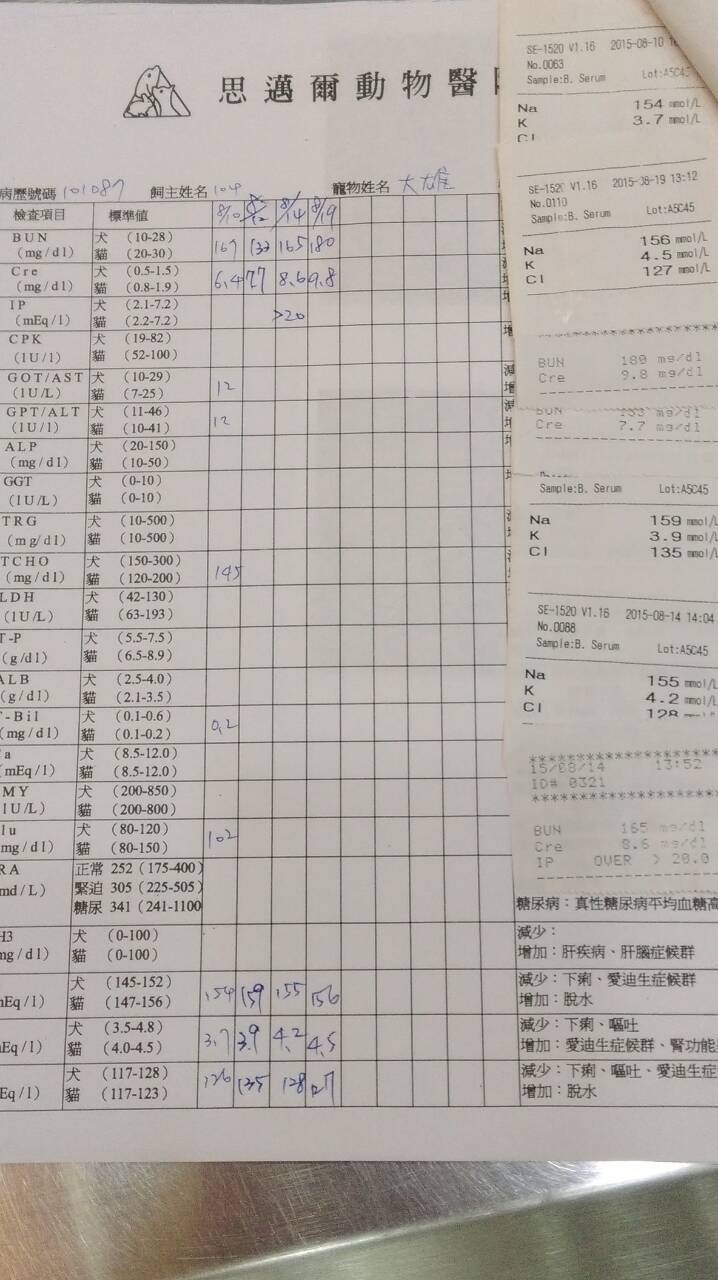 思邁爾動物醫
病歷號碼 101087 飼主姓名 104 寵物姓名 大雄
檢查項目 標準值 8/10 8/14 8/19
BUN 犬 (10-28) 167 133 165 180
(mg/dl) 貓 (20-30)
Cre 犬 (0.5-1.5) 6.4 7.7 8.6 9.8
(mg/dl) 貓 (0.8-1.9)
IP 犬 (2.1-7.2)
(mEq/l) 貓 (2.2-7.2) >20
CPK 犬 (19-82)
(lU/l) 貓 (52-100)
GOT/AST 犬 (10-29)
(lU/L) 貓 (7-25) 12
GPT/ALT 犬 (11-46)
(lU/l) 貓 (10-41) 12
ALP 犬 (20-150)
(mg/dl) 貓 (10-50)
GGT 犬 (0-10)
(lU/L) 貓 (0-10)
TRG 犬 (10-500)
(mg/dl) 貓 (10-500)
TCHO 犬 (150-300)
(mg/dl) 貓 (120-200) 145
LDH 犬 (42-130)
(lU/L) 貓 (63-193)
T-P 犬 (5.5-7.5)
(g/dl) 貓 (6.5-8.9)
ALB 犬 (2.5-4.0)
(g/dl) 貓 (2.1-3.5)
T-Bil 犬 (0.1-0.6)
(mg/dl) 貓 (0.1-0.2) 0.2
a 犬 (8.5-12.0)
(mEq/l) 貓 (8.5-12.0)
MY 犬 (200-850)
lU/L) 貓 (200-800)
lu 犬 (80-120)
mg/dl) 貓 (80-150) 102
RA 正常 252 (175-400)
md/L) 緊迫 305 (225-505)
糖尿 341 (241-1100
糖尿病：真性糖尿病平均血糖高
H3 犬 (0-100) 減少：
mg/dl) 貓 (0-100) 增加：肝疾病、肝腦症候群
犬 (145-152) 154 159 155 156 減少：下痢、愛迪生症候群
Eq/l) 貓 (147-156) 增加：脫水
犬 (3.5-4.8) 3.7 3.9 4.2 4.5 減少：下痢、嘔吐
Eq/l) 貓 (4.0-4.5) 增加：愛迪生症候群、腎功能
犬 (117-128) 126 135 128 127 減少：下痢、嘔吐、愛迪生症
Eq/l) 貓 (117-123) 增加：脫水
SE-1520 V1.16 2015-08-10
No.0063
Sample:B. Serum Lot:A5C45
Na 154 mmol/L
K 3.7 mmol/L
Cl
SE-1520 V1.16 2015-08-19 13:12
No.0110
Sample:B. Serum Lot:A5C45
Na 156 mmol/L
K 4.5 mmol/L
Cl 127 mmol/L
********************
BUN 180 mg/dl
Cre 9.8 mg/dl
BUN 133 mg/dl
Cre 7.7 mg/dl
Sample:B. Serum Lot:A5C45
Na 159 mmol/L
K 3.9 mmol/L
Cl 135 mmol/L
SE-1520 V1.16 2015-08-14 14:04
No.0088
Sample:B. Serum Lot:A5C45
Na 155 mmol/L
K 4.2 mmol/L
Cl 128 mmol/L
********************
15/08/14 13:52
ID# 0321
********************
BUN 165 mg/dl
Cre 8.6 mg/dl
IP OVER > 20.0